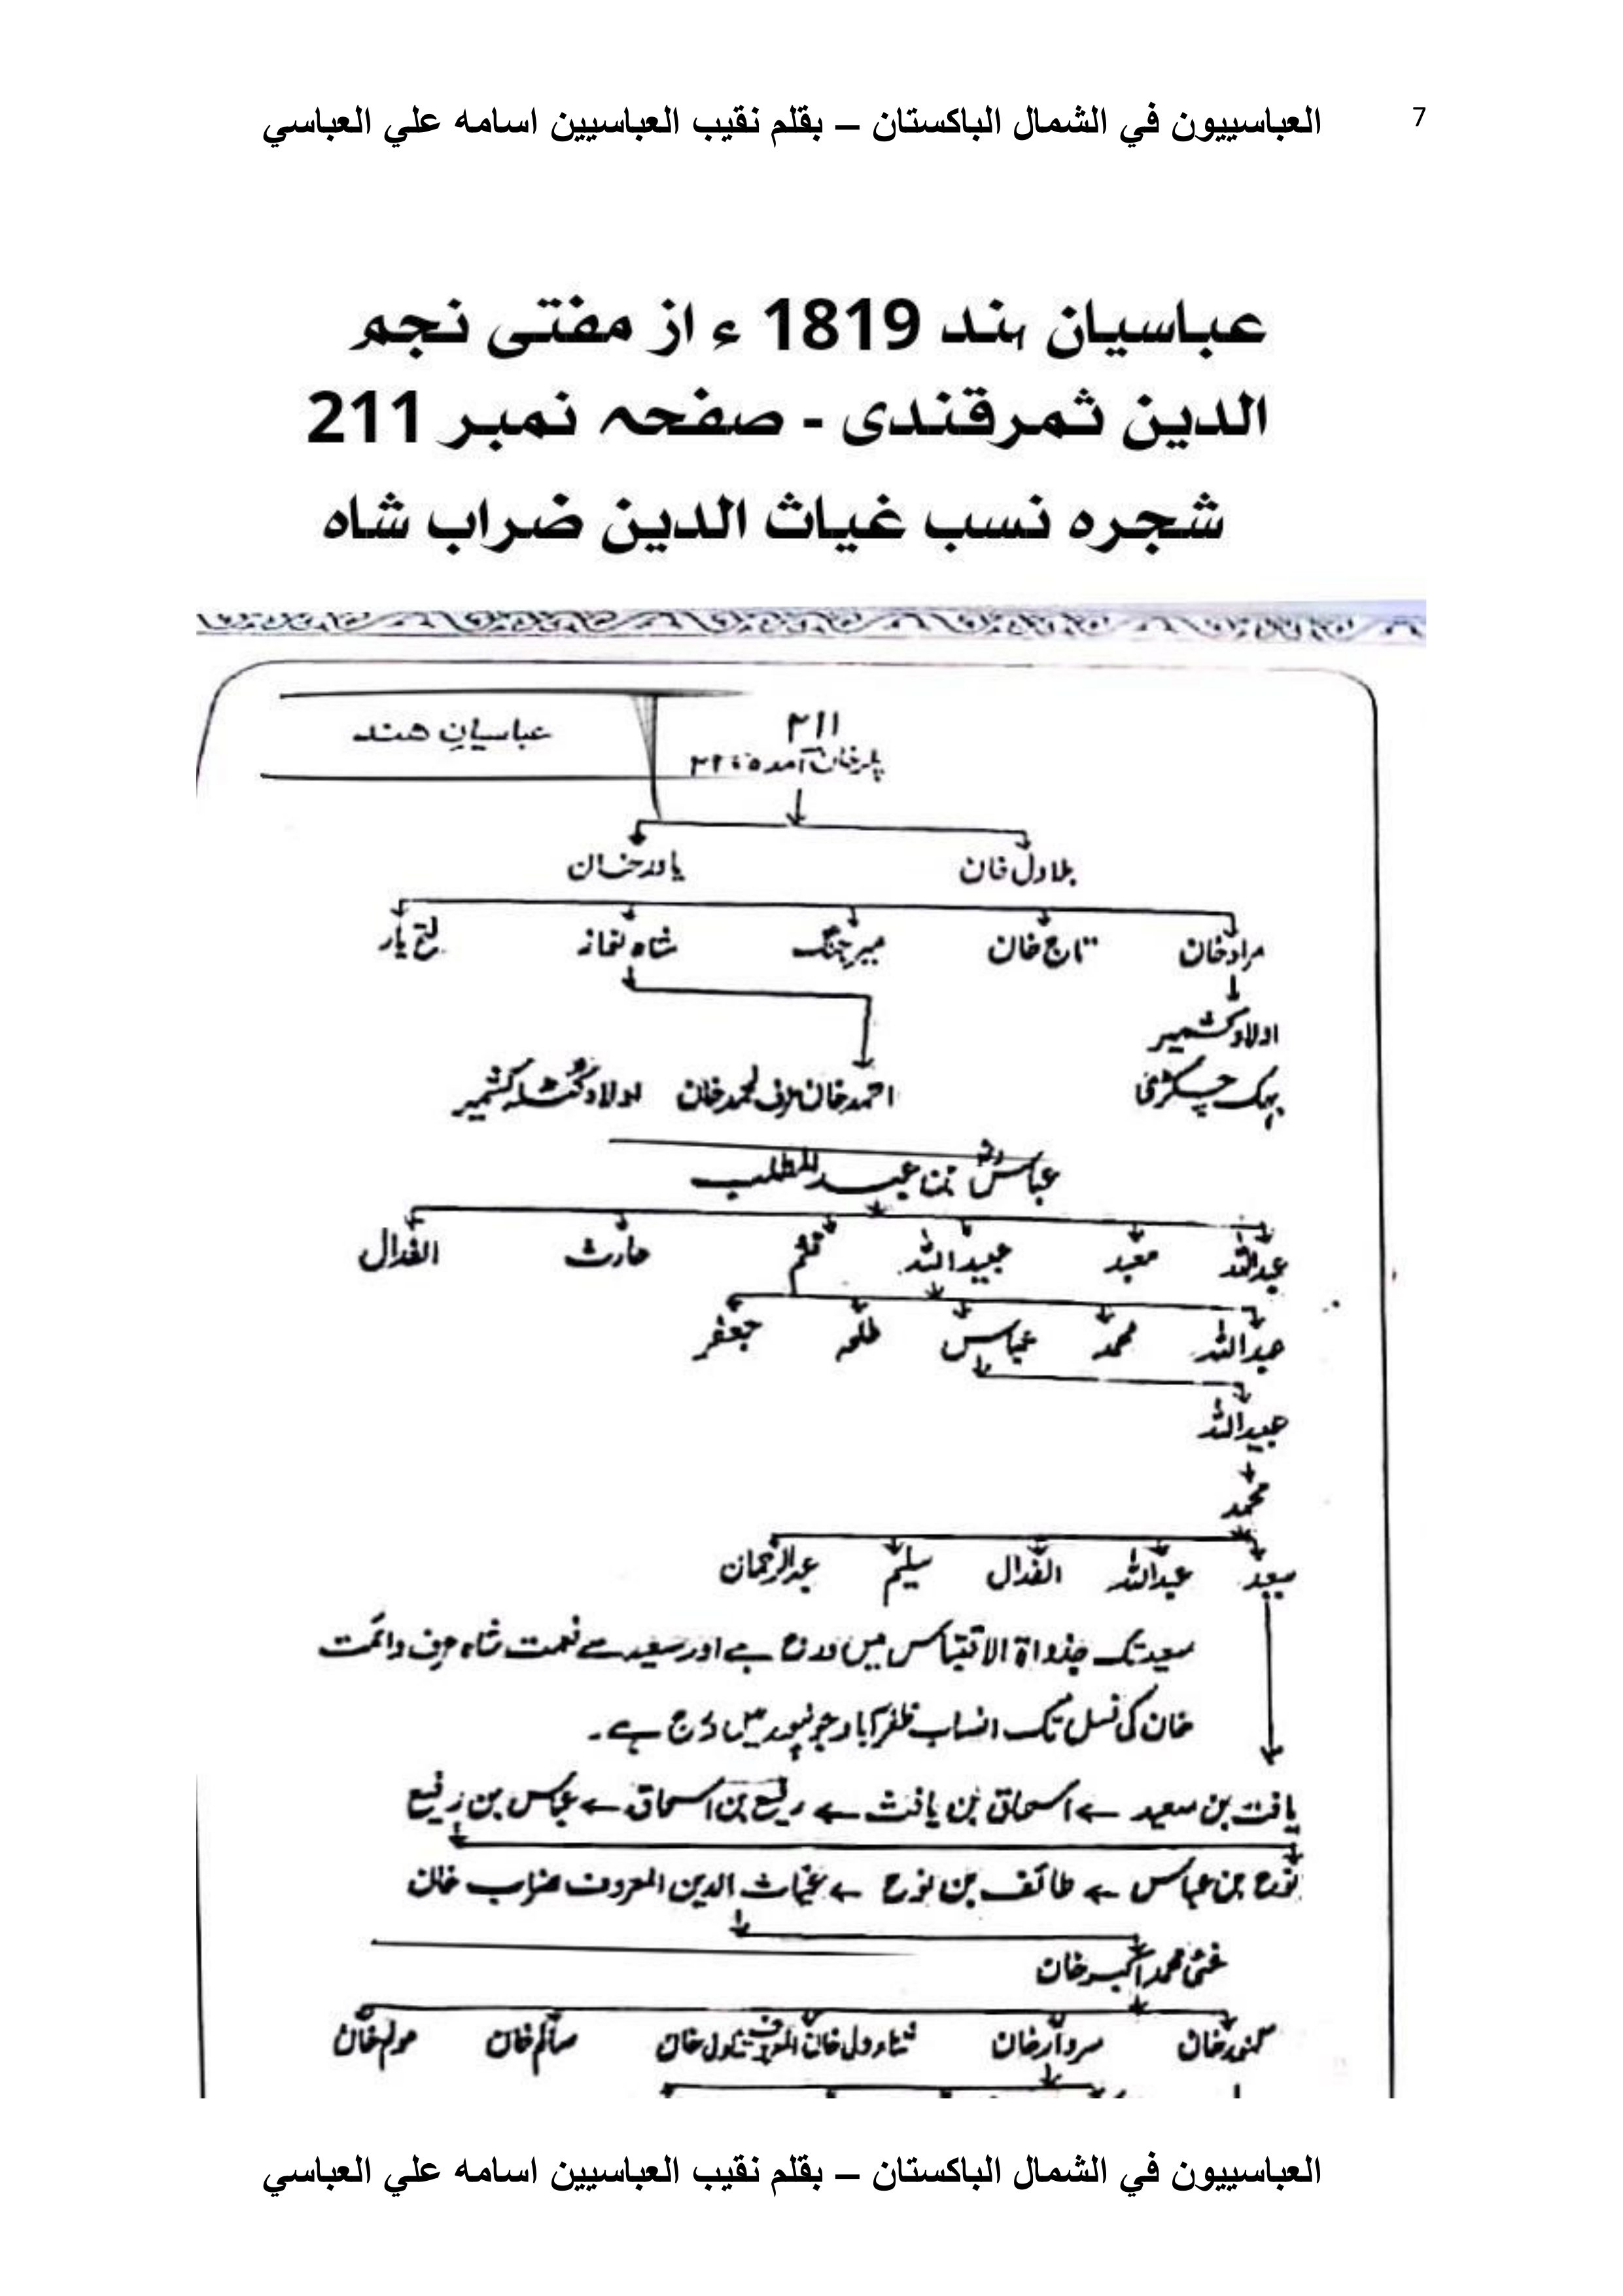 7
العباسييون في الشمال الباكستان – بقلم نقيب العباسيين اسامه علي العباسي
عباسیان ہند 1819 ء از مفتی نجم
الدین ثمرقندی - صفحہ نمبر 211
شجرہ نسب غیاث الدین ضراب شاہ
عباسیانِ ھند
۲۱۱
خان آمدہ
بلاول خان یاور خان
مراد خان تاج خان میر جنگ شاہ نماز فتح یار
اولاد کشمیر
احمد خان عرف محمد خان اولاد کشمیر
عباسؓ بن عبدالمطلب
عبداللہ معبد عبیداللہ قثم حارث الفدال
عبداللہ محمد عباس طلحہ جعفر
عبیداللہ
محمد
سعید عبداللہ الفدال سلیم عبدالرحمان
سعید تک جذواۃ الاقتباس میں درج ہے اور سعید سے نعمت شاہ عرف دائمت
خان کی نسل تک انساب ظفر آباد جونپور میں درج ہے۔
یافت بن سعید ← اسحاق بن یافث ← رفیع بن اسحاق ← عباس بن رفیع
نوح بن عباس ← طائف بن نوح ← غیاث الدین المعروف ضراب خان
غنی محمد اکبر خان
کنور خان سردار خان خان المعروف خان سالم خان مولم خان
العباسييون في الشمال الباكستان – بقلم نقيب العباسيين اسامه علي العباسي